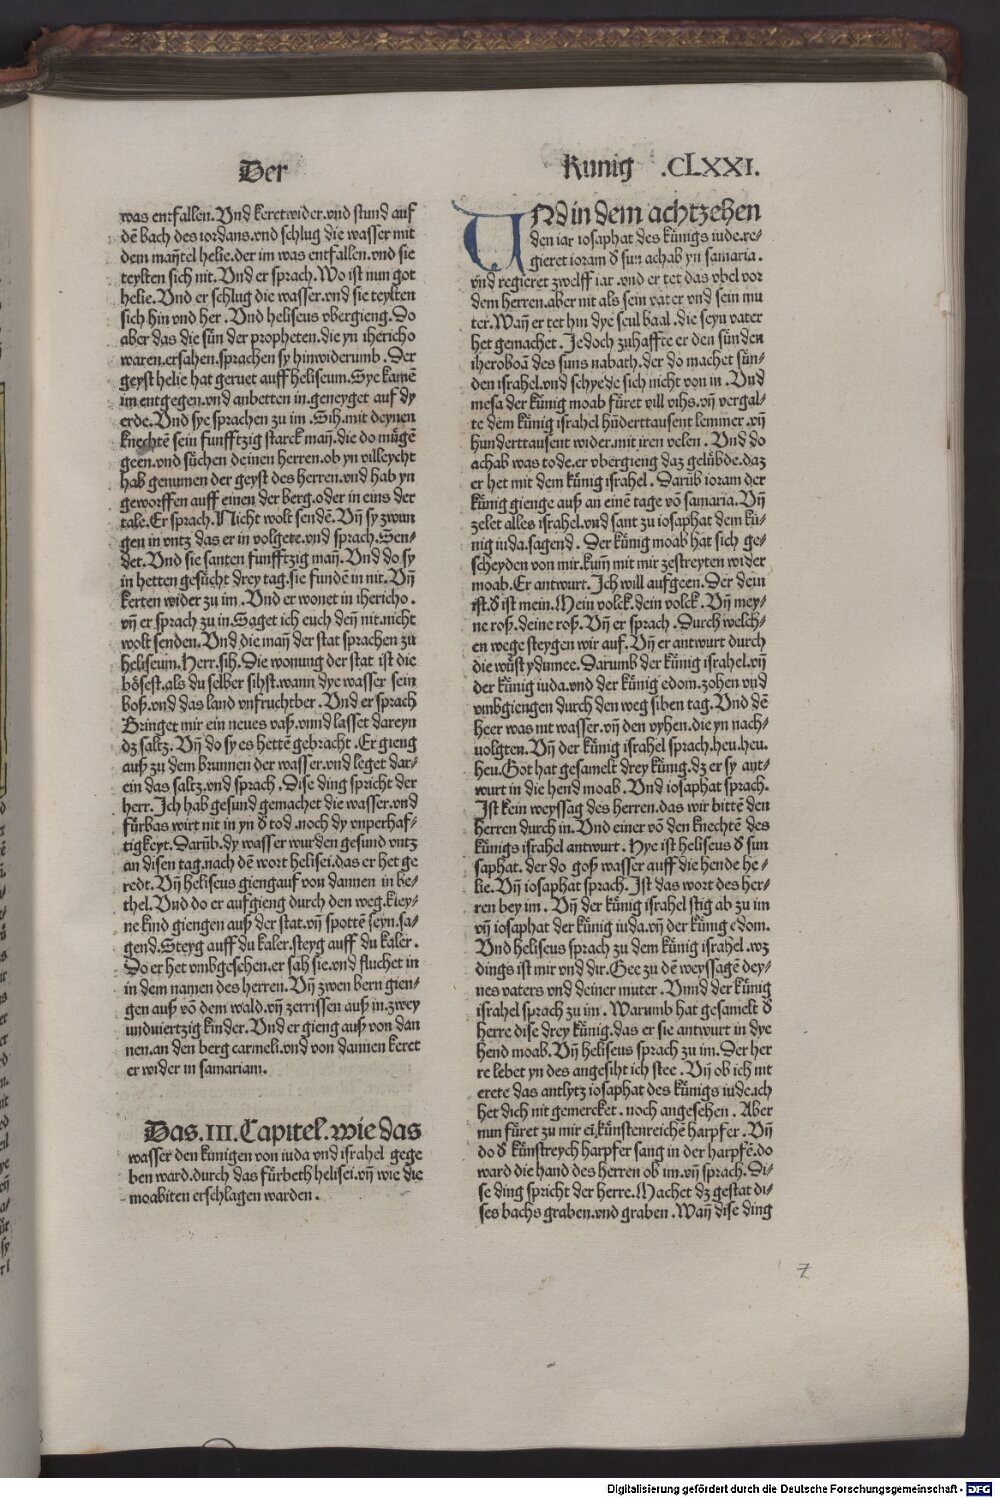 Der
Kunig .CLXXI.
was entfallen. Vnd keret wider. vnd stund auf
dē bach des iordans. vnd schlug die wasser mit
dem maÿtel helie. der im was entfallen. vnd sie
teylten sich nit. Vnd er sprach. Wo ist nun got
helie. Vnd er schlug die wasser. vnd sie teylten
sich hin vnd her. Vnd heliseus vbergieng. Do
aber das die sün der propheten. die yn ihericho
waren. ersahen. sprachen sy hinwiderumb. Der
geyst helie hat geruet auff heliseum. Sye kamē
im entgegen. vnd anbetten in. geneyget auf dy
erde. Vnd sye sprachen zu im. Sih. mit deynen
knechtē sein funfftzig starck man̄. die do mügē
geen. vnd süchen deinen herren. ob yn villeycht
hab genumen der geyst des herren. vnd hab yn
geworffen auff einen der berg. oder in eins der
tale. Er sprach. Nicht wolt sendē. Vn̄ sy zwun
gen in vntz das er in volgete. vnd sprach. Sen-
det. Vnd sie santen funfftzig man̄. Vnd do sy
in hetten gesücht drey tag. sie fundē in nit. Vn̄
kerten wider zu im. Vnd er wonet in ihericho.
vn̄ er sprach zu in. Saget ich euch den̄ nit. nicht
wolt senden. Vnd die man̄ der stat sprachen zu
heliseum. Herr. sih. Die wonung der stat ist die
bösest. als du selber sihst. wann dye wasser sein
boß. vnd das land vnfruchtber. Vnd er sprach
Bringet mir ein neues vaß. vnnd lasset dareyn
dz saltz. Vn̄ do sy es hettē gebracht. Er gieng
auß zu dem brunnen der wasser. vnd leget dar-
ein das saltz. vnd sprach. Dise ding spricht der
herr. Ich hab gesund gemachet die wasser. vnd
fürbas wirt nit in yn d̄ tod. noch dy vnperhaf-
tigkeyt. Darüb. dy wasser wurden gesund vntz
an disen tag. nach dē wort helisei. das er het ge
redt. Vn̄ heliseus gieng auf von dannen in be-
thel. Vnd do er aufgieng durch den weg. kley-
ne kind giengen auß der stat. vn̄ spottē seyn. sa-
gend. Steyg auff du kaler. steyg auff du kaler.
Do er het vmbgesehen. er sah sie. vnd fluchet in
in dem namen des herren. Vn̄ zwen bern gien-
gen auß vō dem wald. vn̄ zerrissen auß in. zwey
undviertzig kinder. Vnd er gieng auß von dan
nen. an den berg carmeli. vnd von dannen keret
er wider in samariam.
Das .III. Capitel. wie das
wasser den künigen von iuda vnd israhel gege
ben ward. durch das fürbeth helisei. vn̄ wie die
moabiten erschlagen warden.
VNd in dem achtzehen
den iar iosaphat des künigs iude. re-
gieret ioram d̄ sun achab yn samaria.
vnd regieret zwelff iar. vnd er tet das vbel vor
dem herren. aber nit als sein vater vnd sein mu
ter. Wan̄ er tet hin dye seul baal. die seyn vater
het gemachet. Jedoch zuhaffte er den sünden
iheroboā des suns nabath. der do machet sün-
den israhel. vnd schyede sich nicht von in. Vnd
mesa der künig moab füret vill vihs. vn̄ vergal-
te dem künig israhel hūderttausent lemmer. vn̄
hunderttausent wider. mit iren velen. Vnd do
achab was tode. er vbergieng daz gelübde. daz
er het mit dem künig israhel. Darüb ioram der
künig gienge auß an einē tage vō samaria. Vn̄
zelet alles israhel. vnd sant zu iosaphat dem kü-
nig iuda. sagend. Der künig moab hat sich ge-
scheyden von mir. kum̄ mit mir zestreyten wider
moab. Er antwurt. Ich will aufgeen. Der dein
ist. d̄ ist mein. Mein volck. dein volck. Vn̄ mey-
ne roß. deine roß. Vn̄ er sprach. Durch welch-
en wege steygen wir auf. Vn̄ er antwurt durch
die wüst ydumee. Darumb der künig israhel. vn̄
der künig iuda. vnd der künig edom. zohen vnd
vmbgiengen durch den weg siben tag. Vnd dē
heer was nit wasser. vn̄ den vyhen. die yn nach-
uolgten. Vn̄ der künig israhel sprach. heu. heu.
heu. Got hat gesamelt drey künig. dz er sy ant-
wurt in die hend moab. Vnd iosaphat sprach.
Ist kein weyssag des herren. das wir bittē den
herren durch in. Vnd einer vō den knechtē des
künigs israhel antwurt. Hye ist heliseus d̄ sun
saphat. der do goß wasser auff die hende he-
lie. Vn̄ iosaphat sprach. Ist das wort des her-
ren bey im. Vn̄ der künig israhel stig ab zu im
vn̄ iosaphat der künig iuda. vn̄ der künig edom.
Vnd heliseus sprach zu dem künig israhel. wz
dings ist mir vnd dir. Gee zu dē weyssagē dey-
nes vaters vnd deiner muter. Vnnd der künig
israhel sprach zu im. Warumb hat gesamelt d̄
herre dise drey künig. das er sie antwurt in dye
hend moab. Vn̄ heliseus sprach zu im. Der her
re lebet yn des angesiht ich stee. Vn̄ ob ich nit
erete das antlytz iosaphat des künigs iude. ich
het dich nit gemercket. noch angesehen. Aber
nun füret zu mir eī. künstenreichē harpfer. Vn̄
do d̄ künstreych harpfer sang in der harpfē. do
ward die hand des herren ob im. vn̄ sprach. Di-
se ding spricht der herre. Machet dz gestat di-
ses bachs graben. vnd graben. Wan̄ dise ding
z
Digitalisierung gefördert durch die Deutsche Forschungsgemeinschaft - DFG